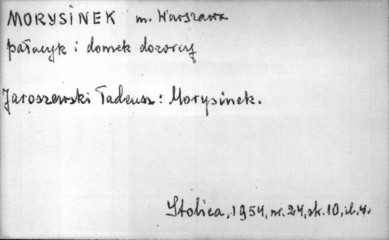 MORYSINEK m. Warszawa
pałacyk i domek dozorcy
Jaroszewski Tadeusz: Morysinek.
Stolica, 1954, nr. 24, str. 10, il. 4.